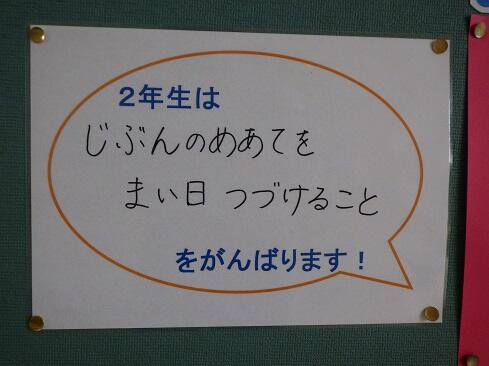 ２年生は
じぶんのめあてを
まい日 つづけること
をがんばります！